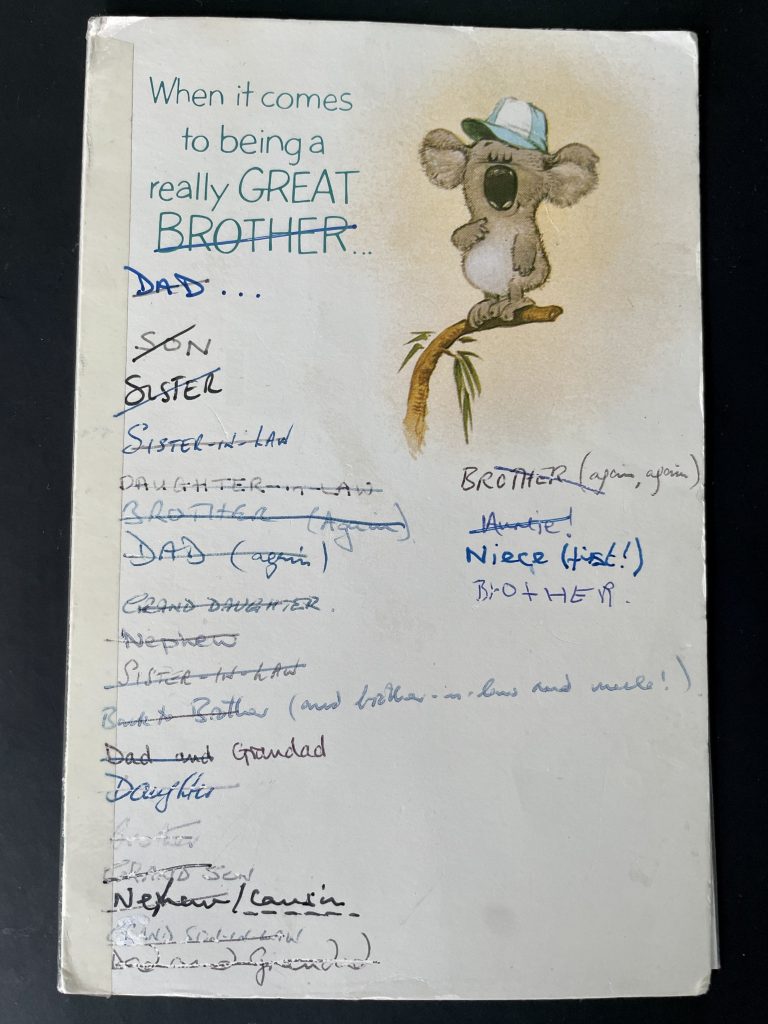 When it comes
to being a
really GREAT
BROTHER...
DAD...
SON
SISTER
SISTER-IN-LAW
DAUGHTER-IN-LAW
BROTHER (Again)
DAD (again)
GRAND DAUGHTER.
Nephew
SISTER-IN-LAW
Back to Brother (and brother-in-law and uncle!)
Dad and Grandad
Daughter
Brother
GRAND SON
Nephew/Cousin
GRAND SON-IN-LAW
Dad and Grandad
BROTHER (again, again)
Auntie!
Niece (first!)
BROTHER.